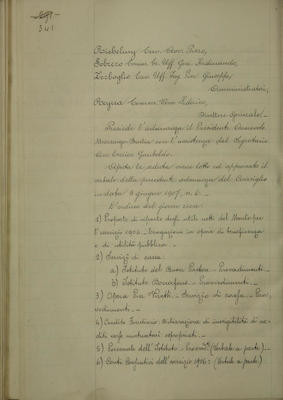 341
Cav. Avv. Piero,
Sobrero Comm. Gr. Uff. Gen. Ferdinando,
Zerboglio Cav. Uff. Ing. Pier Giuseppe,
Amministratori,
Comm. Avv. Federico,
Direttore Generale.
Presiede l'adunanza il Presidente
coll'assistenza del Segretario
Cav. Enrico Garibaldo.
Aperta la seduta viene letto ed approvato il
verbale della precedente adunanza del Consiglio
in data 6 giugno 1907, n. 2.
L'ordine del giorno reca:
1) Proposta di riparto degli utili netti del Monte per
l'esercizio 1906. Erogazioni in opere di beneficenza
e di utilità pubblica.
2) Servizi di cassa:
a) Istituto del Buon Pastore - Provvedimenti.
b) Istituto - Provvedimenti.
3) Opera Pia - Servizio di cassa - Prov-
vedimenti.
4) Credito Fondiario - Dichiarazione di inesigibilità di cre-
diti verso mutuatari espropriati.
5) Personale dell'Istituto - (Verbale a parte).
6) Conti Consuntivi dell'esercizio 1906: (Verbale a parte)